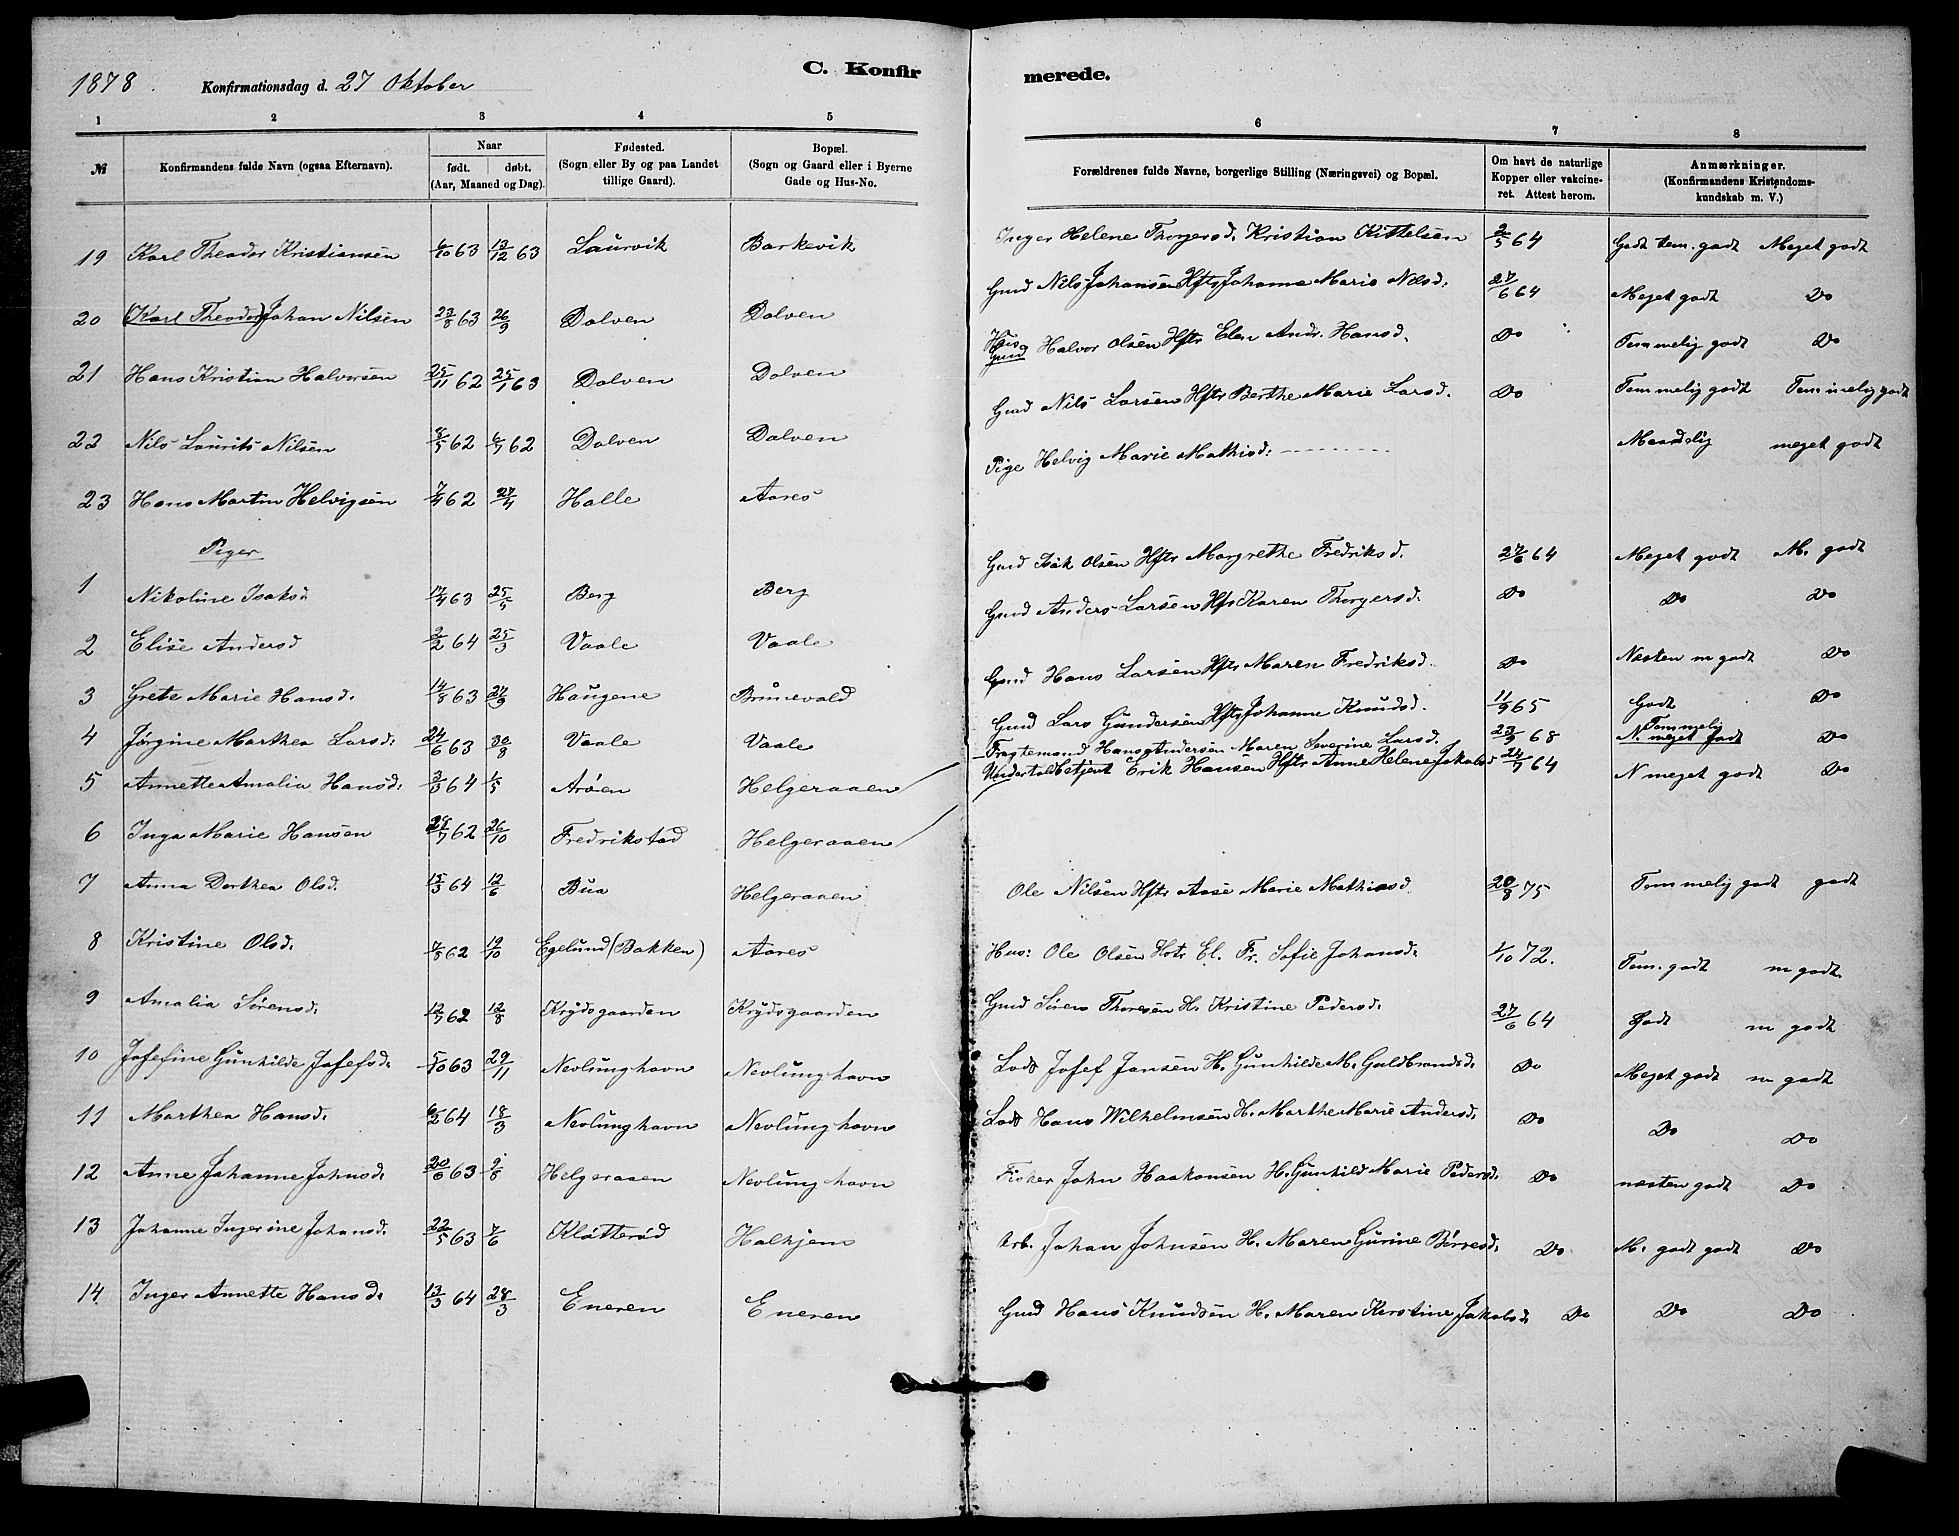 1878. Konfirmationsdag d. 27 Oktober C. Konfirmerede.
1 2 3 4 5 6 7 8
№ Konfirmandens fulde Navn (ogsaa Efternavn). Naar født. døbt. (Aar, Maaned og Dag). Fødested. (Sogn eller By og paa Landet tillige Gaard). Bopæl. (Sogn og Gaard eller i Byerne Gade og Hus-No. Forældrenes fulde Navne, borgerlige Stilling (Næringsvei) og Bopæl. Om havt de naturlige Kopper eller vakcineret. Attest herom. Anmærkninger. (Konfirmandens Kristendomskundskab m. V.)
19 Karl Theodor Kristiansen 6/10 63 13/12 63 Laurvik Barkevik Inger Helene Thorgersd. Kristian Kittelsen 2/5 64 Godt tem. godt Meget godt
20 (Karl Theodor) Johan Nilsen 23/8 63 26/9 Dolven Dolven Gmd Nils Johansen Hfts Johanne Marie Nilsd. 27/6 64 Meget godt Do
21 Hans Kristian Halvorsen 25/11 62 25/1 63 Dolven Dolven Hus Gmd Halvor Olsen Hftr Elen Andr. Hansd. Do Temmelig godt Do
22 Nils Laurits Nilsen 8/5 62 6/7 62 Dolven Dolven Gmd Nils Larsen Hftr Berthe Marie Larsd. Do Temmelig godt Temmelig godt
23 Hans Martin Helvigsen 7/4 62 27/4 Halle Aares Pige Helvig Marie Mathisd. Maadelig meget godt
Piger
1 Nikoline Isaksd. 17/4 63 25/5 Berg Berg Gmd Isak Olsen Hftr Margrethe Fredriksd. 27/6 64 Meget godt M. godt
2 Elise Andersd 2/2 64 25/3 Vaale Vaale Gmd Anders Larsen Hfs Karen Thorgersd. Do Do Do
3 Grete Marie Hansd. 14/8 63 27/9 Haugene Brunevald Gmd Hans Larsen Hftr Maren Fredriksd. Do Næsten m godt Do
4 Jørgine Marthea Larsd. 24/6 63 30/8 Vaale Vaale Gmd Lars Gundersen Hfts Johanne Knudsd. 11/9 65 Godt Do
5 Annette Amalia Hansd. 3/3 64 1/5 Arøen Helgeraaen Fragtemand Hans Andersen Maren Severine Larsd. 23/9 68 Temmelig N. meget godt Do
6 Inga Marie Hansen 28/7 62 26/10 Fredrikstad Helgeraaen Undertoldbetjent Erik Hansen Hftr Anne Helene Jakobsd 24/7 64 N meget godt Do
7 Anna Dorthea Olsd. 15/3 64 12/6 Bua Helgeraaen Ole Nilsen Hftr Aase Marie Mathiasd. 20/8 75 Temmelig godt godt
8 Kristine Olsd. 7/8 62 19/10 Egelund (Bakken) Aares Hus: Ole Olsen Hstr El. Fr. Sofie Johansd. 1/10 72. Tem. godt m godt
9 Amalia Sørensd. 12/7 62 12/8 Krydsgaarden Krydsgaarden Gmd Sören Thoresen H. Kristine Pedersd. 27/6 64 Godt m godt
10 Josefine Gunhilde Josefsd. 5/10 63 29/11 Nevlunghavn Nevlunghavn Lods Josef Jansen H. Gunhilde M. Guldbrandsd. Do Meget godt m godt
11 Marthea Hansd. 6/2 64 18/3 Nevlunghavn Nevlunghavn Lods Hans Wilhelmsen H. Marthe Marie Andersd. Do Do Do
12 Anne Johanne Johnsd. 20/6 63 9/8 Helgeraaen Nevlunghavn Fisker John Haakonsen H. Gunhild Marie Pedersd. Do næsten godt Do
13 Johanne Ingerine Johansd. 22/5 63 7/6 Klåtterød Halhjem Arb. Johan Johnsen H. Maren Gurine Börresd. Do M. godt godt Do
14. Inger Annette Hansd. 13/3 64 28/3 Eneren Eneren Gmd Hans Knudsen H. Maren Kirstine Jakobsd. Do Do Do